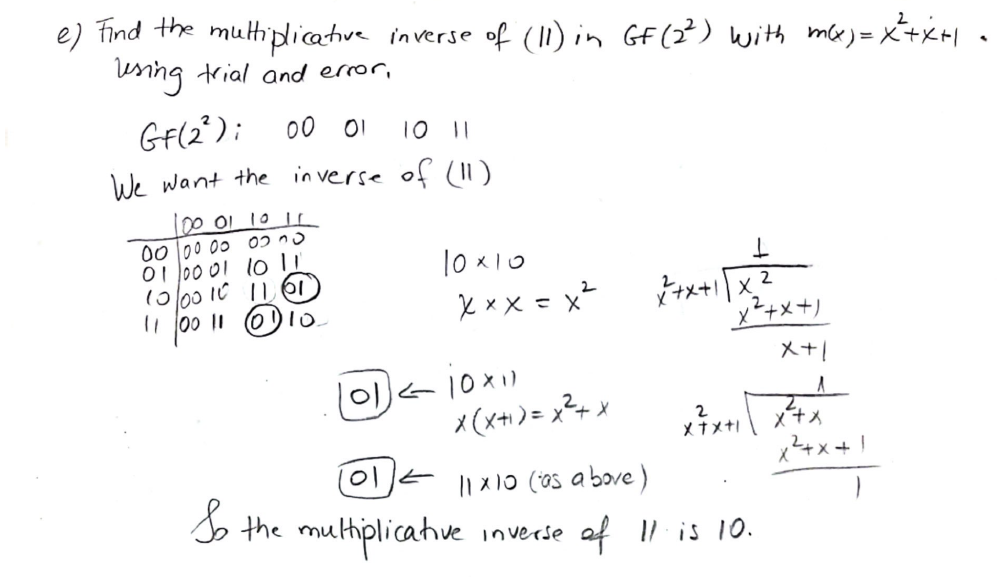 e) Find the multiplicative inverse of (11) in GF(2²) with m(x) = x²+x+1.
Using trial and error.
GF(2²): 00 01 10 11
We want the inverse of (11)
00 01 10 11
00 00 00 00 00
01 00 01 10 11
10 00 10 11 01
11 00 11 01 10
10 × 10
x × x = x²
1
x²+x+1 x²
x²+x+1
x+1
01 ← 10 × 11
x(x+1) = x²+x
1
x²+x+1 x²+x
x²+x+1
1
01 ← 11 × 10 (as above)
So the multiplicative inverse of 11 is 10.